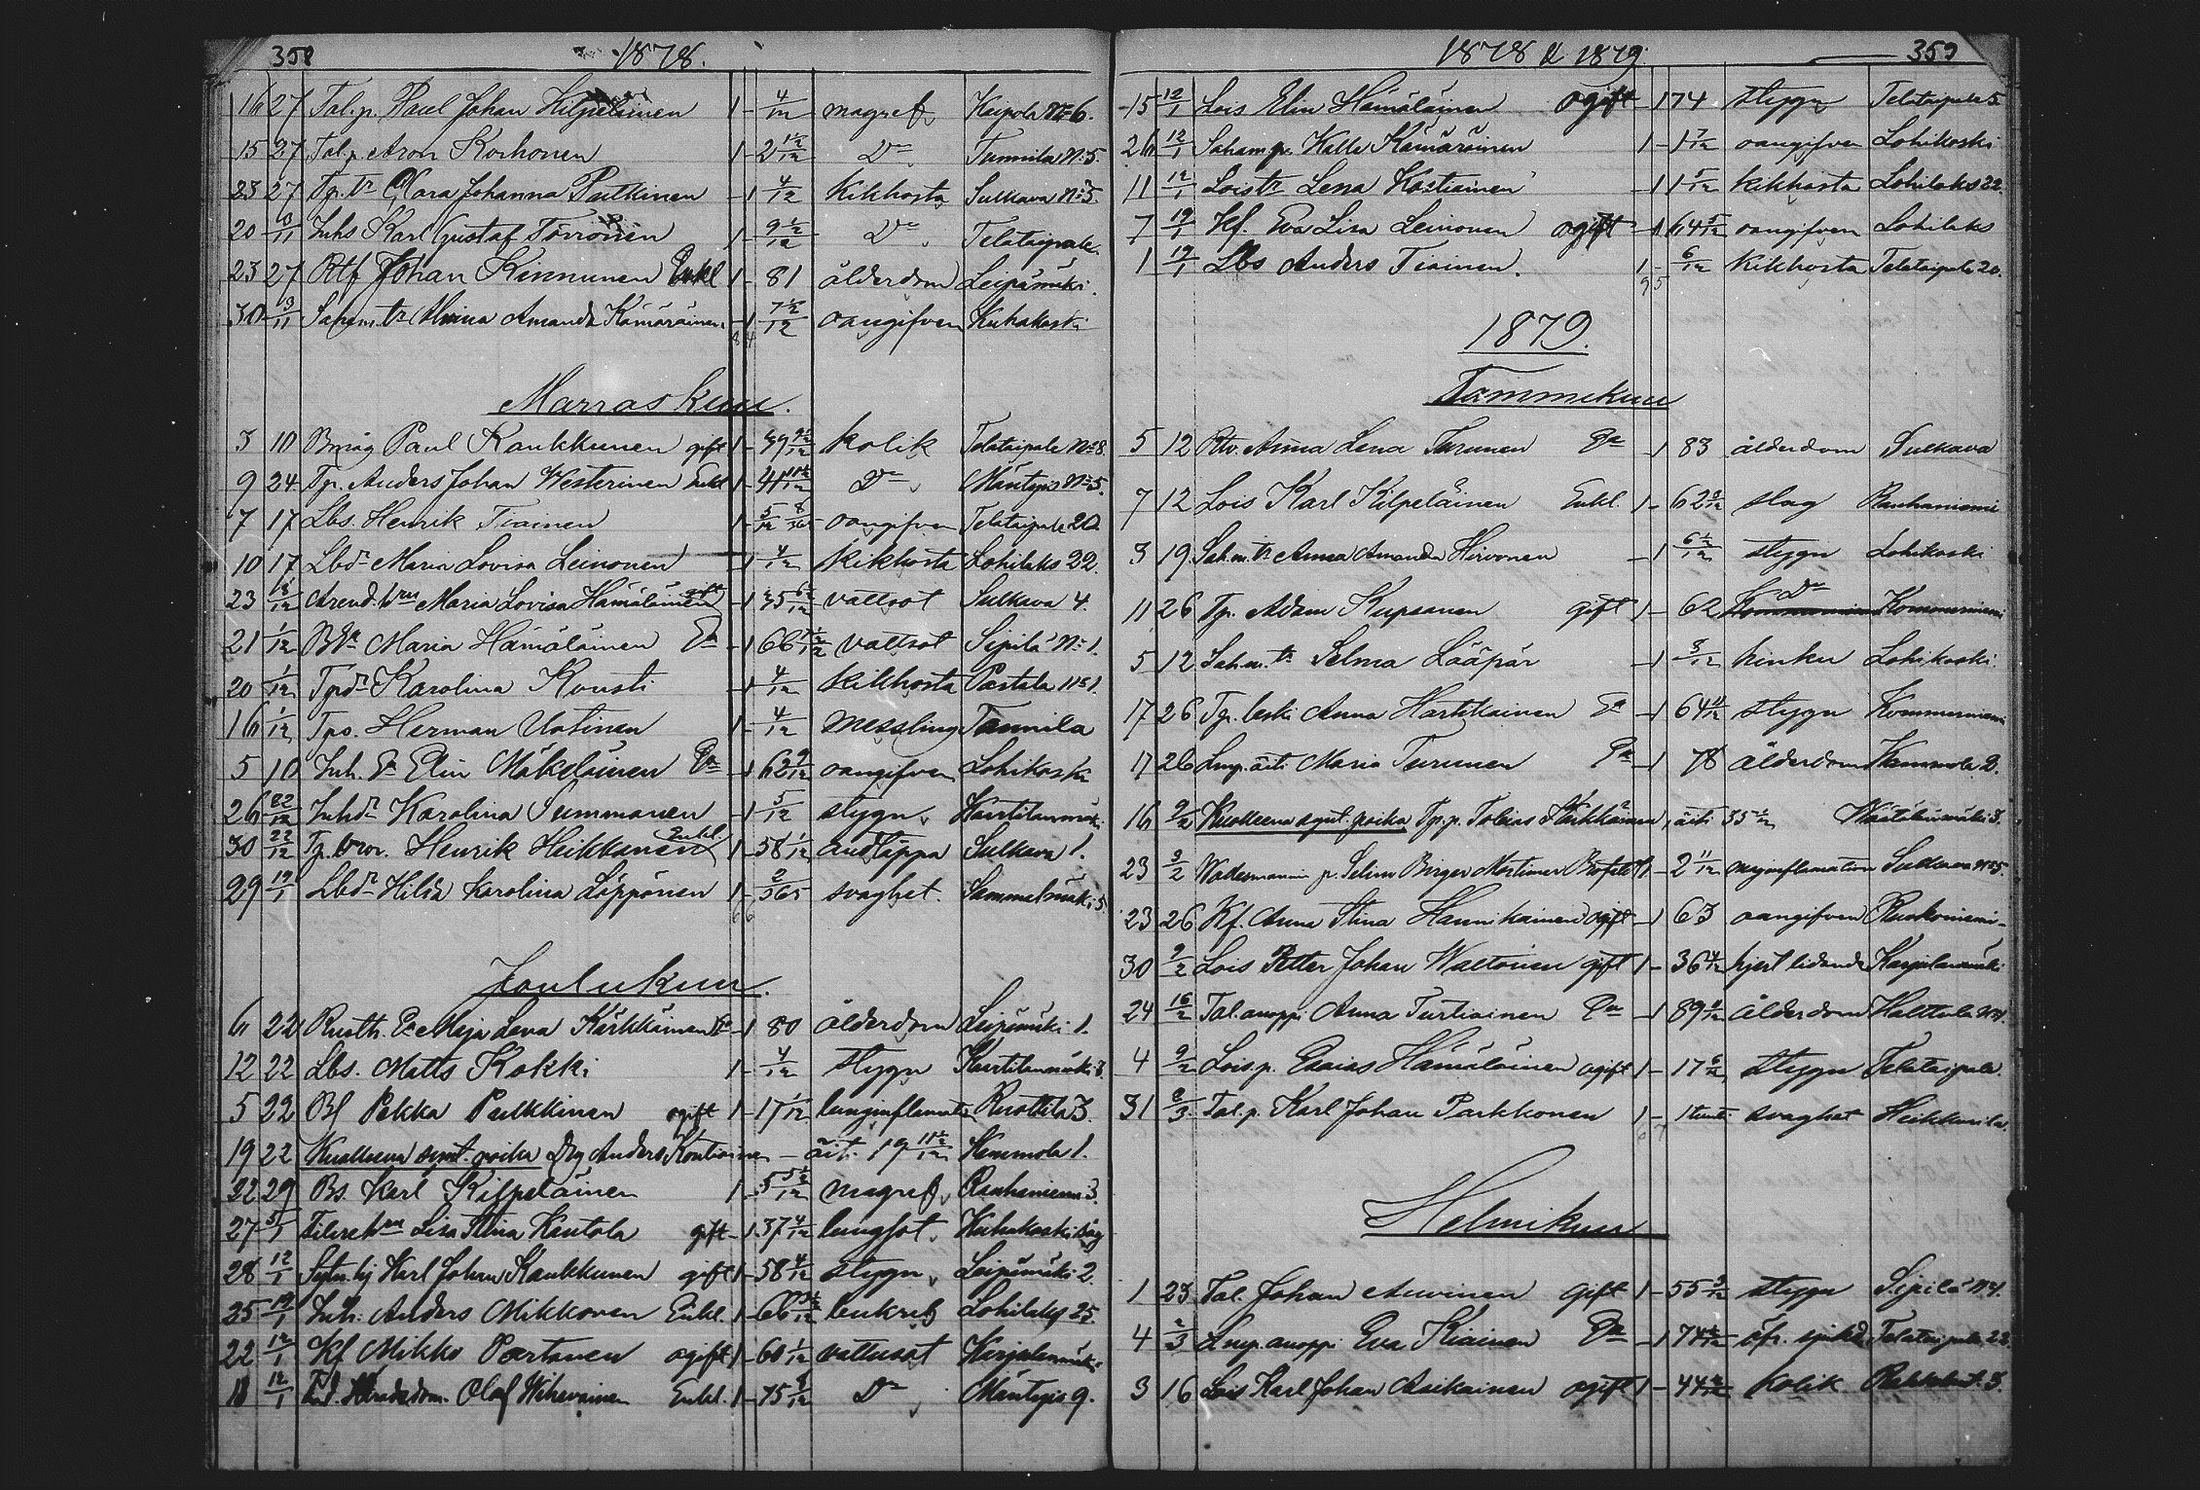 358 1878.
16 27 Tal.p. Paul Johan Kilpeläinen 1 - 4/12 magref Kaipola No 6.
15 27 Tal.p. Aron Korhonen 1 - 2 1½/12 Do Tunnila N:5.
23 27 Tp. tr Clara Johanna Pulkkinen - 1 4/12 Kikhosta Sulkava No 5.
20 3/11 Inhs Karl Gustaf Törrönen 1 - 9½/12 Do Telataipale.
23 27 Rtf Johan Kinnunen Enkl 1 - 81 ålderdom Leipämäki.
30 3/11 Saham. tr Amanda Kämäräinen - 1 7½/12 oangifven Kuhakoski
Marraskuu.
3 10 Paul Kaukkunen gift 1 - 9½/12 kolik Telataipale No 8.
9 24 Tp. Anders Johan Westerinen Enkl 1 - 41 10½/12 Do Mäntyis No 5.
7 17 Lbs. Henrik Tiainen 1 - 5/12 8/365 oangifven Telataipale 20
10 17 Lbdr Maria Lovisa Leinonen - 1 4/12 kikhosta Lohilaks 22.
23 Arend. hru Maria Lovisa Hämäläinen gift - 1 35 6/12 vattsot Sulkava 4.
21 1/12 Maria Hämäläinen Ea - 1 66 vattsot Sipilä No 1.
20 1/12 Tpdr Karolina Kousti - 1 4/12 kikhosta Partala No 1.
16 1/12 Tps. Herman Uotinen 1 - 4/12 messling Tunnila
5 10 Inh. Ea Elin Mäkeläinen Ea - 1 62 9/12 oangifven Lohikoski
26 22/12 Inhdr Karolina Summanen - 1 5/12 stygn Karttilanmäki
30 22/12 Tp. Henrik Heikkanen Enkl. 1 - 58 1/12 andtäppa Sulkava 1.
29 19/1 Lbdr Hilda Karolina Löppönen 1 - 2/365 svaghet. Sammalmäki 5.
Joulukuu.
6 22 Ruoth. Ea Maja Lena Kärkkäinen Ea - 1 80 ålderdom Leipämäki 1.
12 22 Lbs. Matts Kokki 1 - 4/12 stygn Karttilanmäki 3.
5 22 Bf Pekka Pulkkinen ogift 1 - 17 1/12 lunginflamation Ruottila 3.
19 22 Kuolleena synt. poika Drg Anders Kontiainen - äiti 19 11½/12 Kammola 1.
22 29 Bs. Karl Kilpeläinen 1 - 5 5½/12 magref Rauhaniemi 3.
27 5/1 hru Lisa Stina Rautola gift - 1 37 4/12 lungsot. Kuhakoski såg
28 12/1 Karl Johan Kaukkunen gift 1 - 58 4/12 stygn Leipämäki 2.
25 19/1 Inh. Anders Mikkonen Enkl. 1 - 66 benkräft Lohilaks 25.
22 12/1 Kf Mikko Partanen ogift 1 - 60 1/12 vattusot Karjulanmäki
18 12/1 Olof Wihavainen Enkl. 1 - 75 Do Mäntyis 9.
1878 & 1879. 359
15 12/1 Lois Elin Hämäläinen ogift - 1 74 stygn Telataipale 5.
26 12/1 Saham. p. Kalle Kämäräinen 1 - 1 7/12 oangifven Lohikoski
11 12/1 Lois tr Lena Kostiainen - 1 1 5/12 kikhosta Lohilaks 22.
7 19/1 Kf. Eva Lisa Leinonen ogift - 1 64 5/12 oangifven Lohilaks
1 19/1 Lbs Anders Tiainen. 1 - 6/12 kikhosta Telataipale 20.
95
1879.
Tammikuu
5 12 Anna Lena Turunen Ea - 1 83 ålderdom Sulkava
7 12 Lois Karl Kilpeläinen Enkl. 1 - 62 slag Rauhaniemi
3 19 Sah.m. tr Anna Amanda Hirvonen - 1 6½/12 stygn Lohikoski
11 26 Tp. Adam Kupsanen gift 1 - 62 Do Kommerniemi
5 12 Saham. tr Selma Lääpär - 1 3/12 hinku Lohikoski.
17 26 Tp. leski Anna Hartikainen Ea - 1 64 stygn Kommerniemi
17 26 Lmp. äiti Maria Turunen Ea - 1 78 ålderdom Kammola 2.
16 9/2 Kuolleena synt. poika Tp.p. Tobias Kärkkäinen, äiti 35 3.
23 9/2 p. Selim Birger Mortimer 1 - 2 11/12 maginflamation Sulkava No 5.
23 26 Kf. Anna Stina Hannikainen ogift - 1 63 oangifven Ruokoniemi
30 9/2 Lois Petter Johan Waltonen gift 1 - 36 hjertlidande Karjulanmäki
24 16/2 Tal. anoppi Anna Turtiainen Ea - 1 89 ålderdom Halttula No 4.
4 9/2 Lois p. Esaias Hämäläinen ogift 1 - 17 6/12 stygn Telataipale.
31 2/3 Tal.p. Karl Johan Parkkonen 1 - 1 tunti svaghet Heikkurila.
Helmikuu
1 23 Tal. Johan Auvinen gift 1 - 55 stygn Sipilä No 4.
4 2/3 Lmp. anoppi Eva Kiainen Ea - 1 74 Telataipale 22.
3 16 Lois Karl Johan Asikainen ogift 1 - 44 kolik 3.